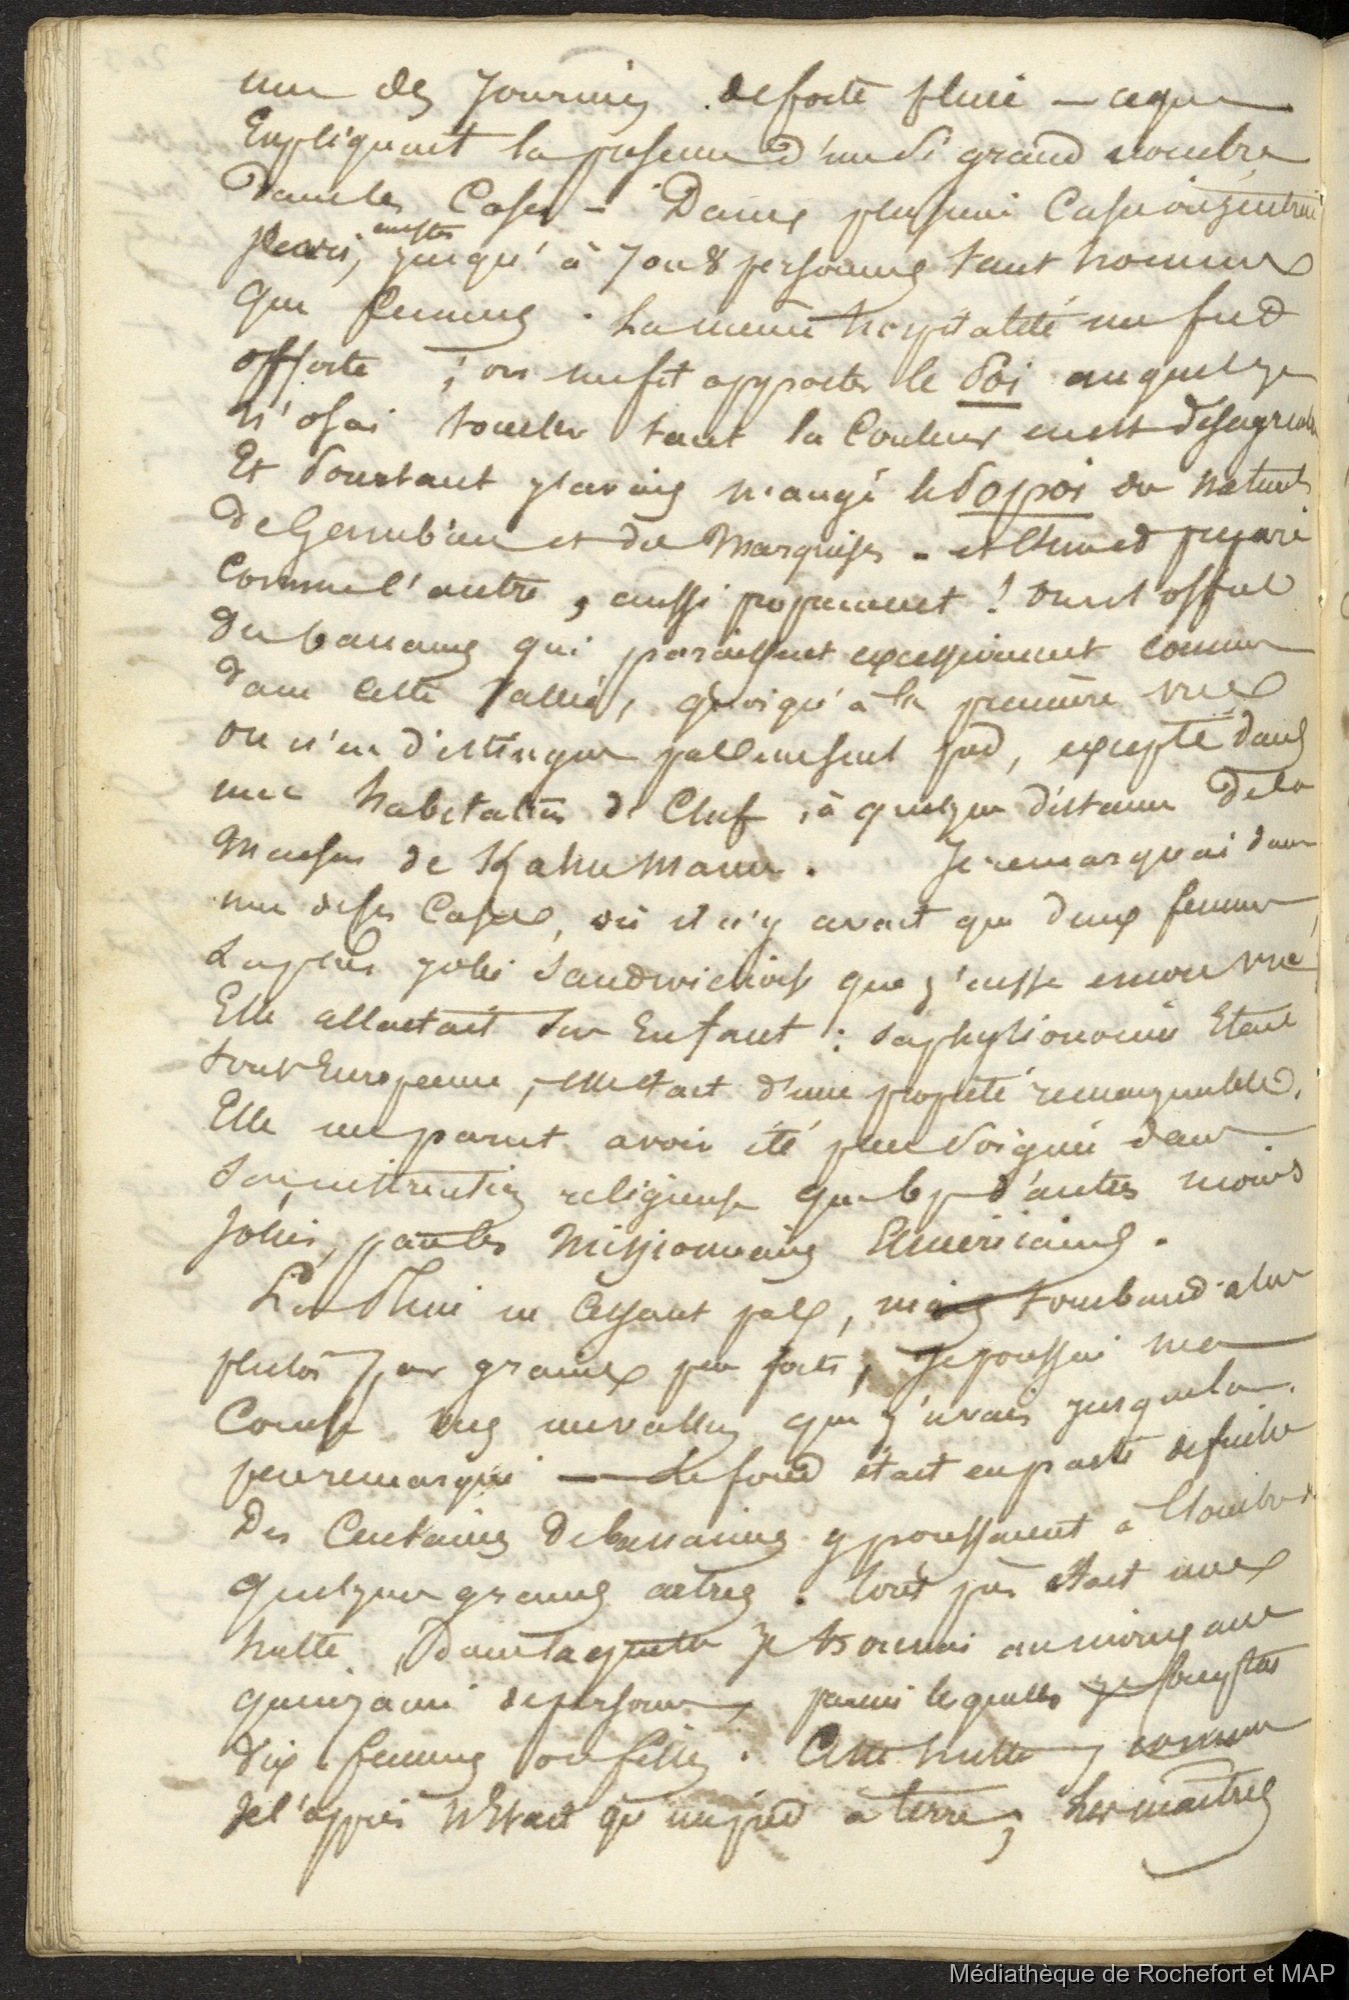 une des journées de forte pluie — ce que
Expliquait la présence d'un si grand nombre
dans les Cases — Dans plusieurs Cases où j'entrai
jusqu'à 7 ou 8 personnes tant hommes
que femmes. La même hospitalité me fut
offerte ; on me fit apporter le Poi auquel je
n'osai toucher tant la Couleur en est désagréable
Et Pourtant j'avais mangé le Popoi des naturels
de Gambier et des Marquises — et Preparé
Comme l'autre, aussi proprement ! On m'offrit
des bananes qui paraissent excessivement communes
dans cette Vallée, quoiqu'à la première vue
on n'en distingue pas un seul pied, excepté dans
une habitation de Chef, à quelque distance de la
Maison de Kahumanu. Je remarquai dans
une de ses Cases, où il n'y avait que deux femmes
La plus jolie Sandwichoise que j'eusse encore vue
Elle allaitait son Enfant : sa physionomie Etait
tout Européenne, elle était d'une propreté remarquable.
Elle me parut avoir été plus Soignée dans
Son instruction religieuse que bp d'autres moins
Jolies, par les Missionnaires Américains.
La Pluie ne Cessant pas, mais tombant alors
plutôt par grains peu forts, Je poussai ma
Course vers une vallée que j'avais jusque la
peu remarquée — Le fond était en partie
Des Centaines de bananiers y poussaient à l'ombre de
quelques grands arbres. tout près était une
hutte, Dans laquelle Je trouvai au moins une
quinzaine de personnes, parmi lesquelles Je comptai
dix femmes ou filles. Cette hutte, comme
Je l'appris N'Etait qu'un pied à terre ; Les maîtres
Médiathèque de Rochefort et MAP